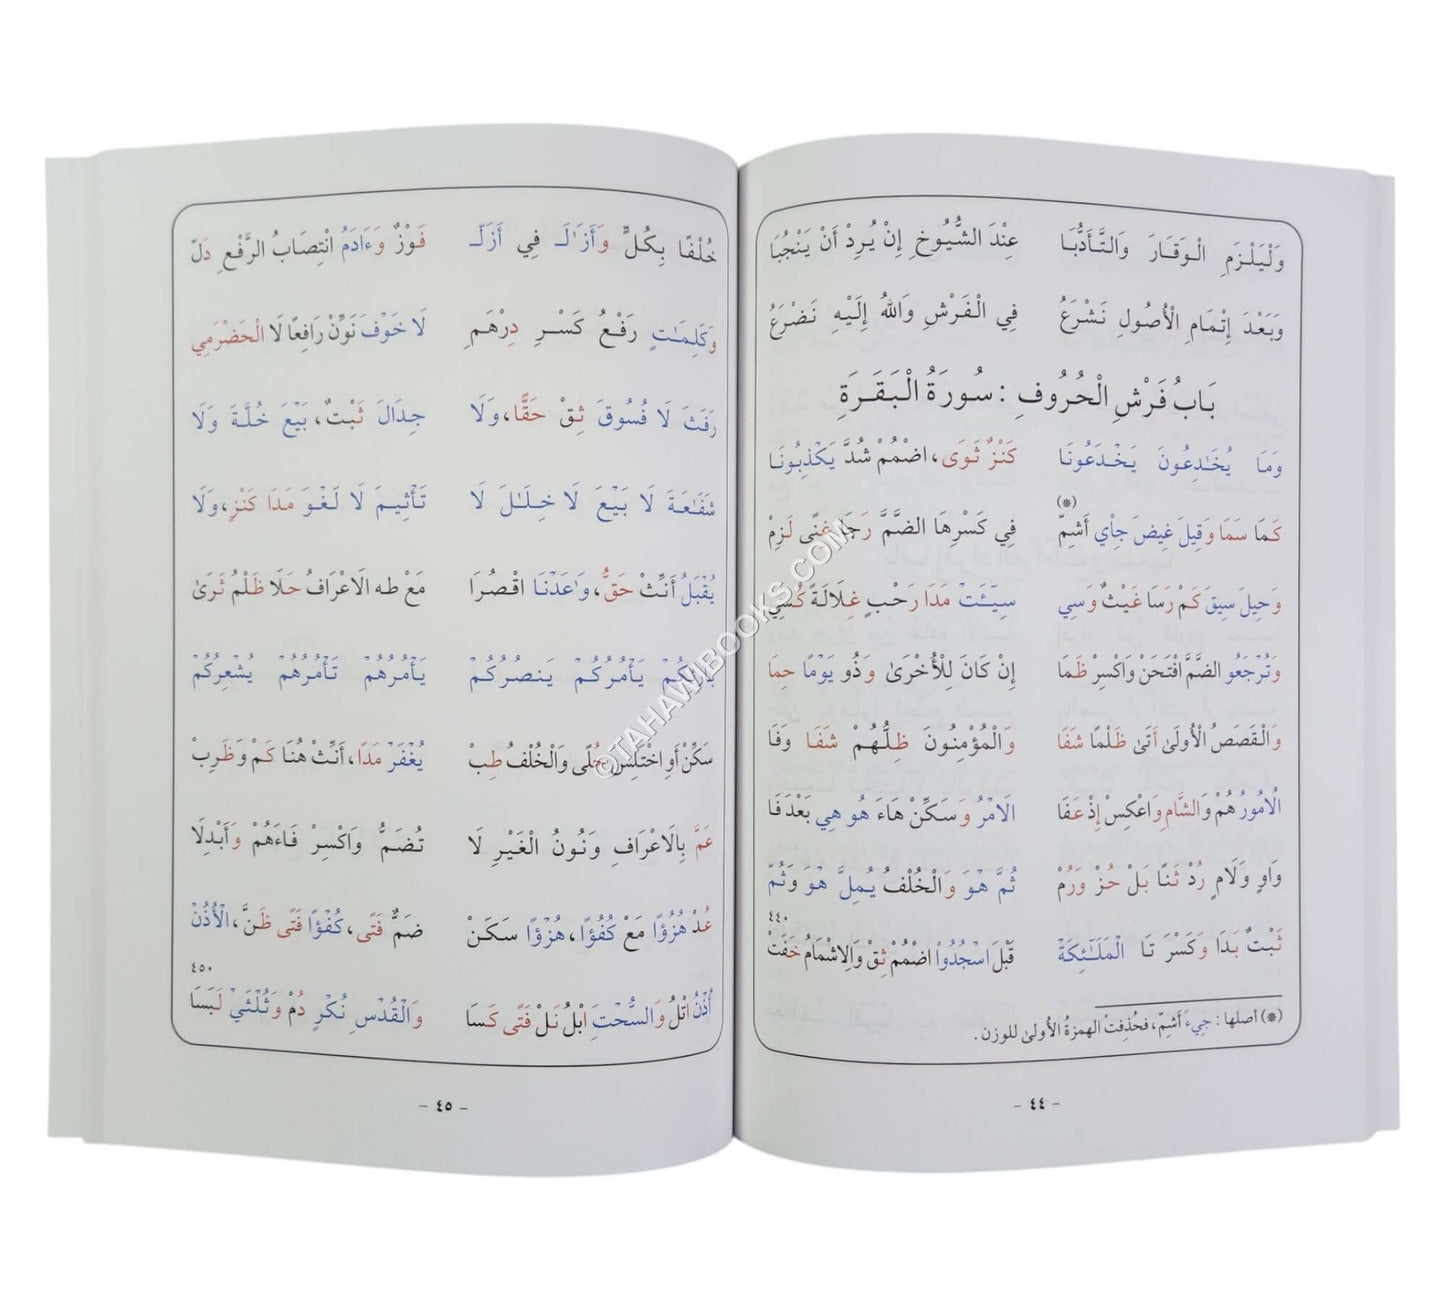 وَلْيَلْزَمِ الْوَقَارَ وَالتَّأَدُّبَا عِنْدَ الشُّيُوخِ إِنْ يُرِدْ أَنْ يَنْجُبَا
وَبَعْدَ إِتْمَامِ الْأُصُولِ نَشْرَعُ فِي الْفَرْشِ وَاللهُ إِلَيْهِ نَضْرَعُ
بَابُ فَرْشِ الْحُرُوفِ : سُورَةُ الْبَقَرَةِ
وَمَا يُخَـٰدِعُونَ يَخْدَعُونَا كَنْزٌ ثَوَى، اضْمُمْ شُدَّ يَكْذِبُونَا
(*)
كَمَا سَمَا وَقِيلَ غِيضَ جِايْ أَشِمّ فِي كَسْرِهَا الضَّمَّ رَجَا غِنًى لَزِمْ
وَحِيلَ سِيقَ كَمْ رَسَا غَيْثٌ وَسِي سِيٓـَٔتْ مَدَا رَحْبٍ غِلَالَةً كُسِي
وَتُرْجَعُو الضَّمَّ افْتَحَنْ وَاكْسِرْ ظَمَا إِنْ كَانَ لِلْأُخْرَىٰ وَذُو يَوْمًا حِمَا
وَالْقَصَصُ الْأُولَىٰ أَتَىٰ ظَلْمًا شَفَا وَالْمُؤْمِنُونَ ظِلُّهُمْ شَفَا وَفَا
الُامُورُ هُمْ وَالشَّامِ وَاعْكِسْ إِذْ عَفَا الَامْرُ وَسَكِّنْ هَاءَ هُو هِي بَعْدَ فَا
وَاوٍ وَلَامٍ رُدْ ثَنًا بَلْ حُزْ وَرُمْ ثُمَّ هْوَ وَالْخُلْفُ يُمِلَّ هْوَ وَثُمّ
٤٤٠
ثَبْتٌ بَدَا وَكَسْرَ تَا الْمَلَـٰٓئِكَةْ قَبْلَ اسْجُدُواْ اضْمُمْ ثِقْ وَالِاشْمَامُ خَفَتْ
(*) أصلها : جِيءَ أَشِمّ، فحُذِفتُ الهمزةُ الأُولىٰ للوزن .
– ٤٤ –
خُلْفًا بِكُلٍّ وَأَزَالَـ فِي أَزَلّـ فَوْزٌ وَءَادَمُ انْتِصَابُ الرَّفْعِ دَلّ
وَكَلِمَـٰتٍ رَفْعُ كَسْرِ دِرْهَمِ لَا خَوْفَ نَوِّنْ رَافِعًا لَا الْحَضْرَمِي
رَفَثَ لَا فُسُوقَ ثِقْ حَقًّا، وَلَا جِدَالَ ثَبْتٌ، بَيْعَ خُلَّةَ وَلَا
شَفَـٰعَةَ لَا بَيْعَ لَا خِلَـٰلَ لَا تَأْثِيمَ لَا لَغْوَ مَدَا كَنْزٍ، وَلَا
يُقْبَلُ أَنِّثْ حَقُّ، وَٰعَدْنَا اقْصُرَا مَعْ طه الَاعْرَافُ حَلَا ظَلْمُ ثَرَىٰ
بَارِئِكُمْ يَأْمُرْكُمْ يَنصُرْكُمْ يَأْمُرْهُمْ تَأْمُرْهُمْ يُشْعِرْكُمْ
سَكِّنْ أَوِ اخْتَلِسْ حُلًى وَالْخُلْفُ طِبْ يُغْفَرْ مَدًا، أَنِّثْ هُنَا كَمْ وَظَرِبْ
عَمَّ بِالَاعْرَافِ وَنُونُ الْغَيْرِ لَا تُضَمُّ وَاكْسِرْ فَاءَهُمْ وَأَبْدِلَا
عُدْ هُزُؤًا مَعْ كُفُؤًا، هُزْؤًا سَكَنْ ضَمٌّ فَتًى، كُفْؤًا فَتًى ظَنَّ، الْأُذْنْ
٤٥٠
أُذْنٌ اتْلُ وَالسُّحْتَ ابْلُ نَلْ فَتًى كَسَا وَالْقُدْسِ نُكْرٍ دُمْ وَثُلْثَيْ لَبَسَا
– ٤٥ –
©TAHAWIBOOKS.COM